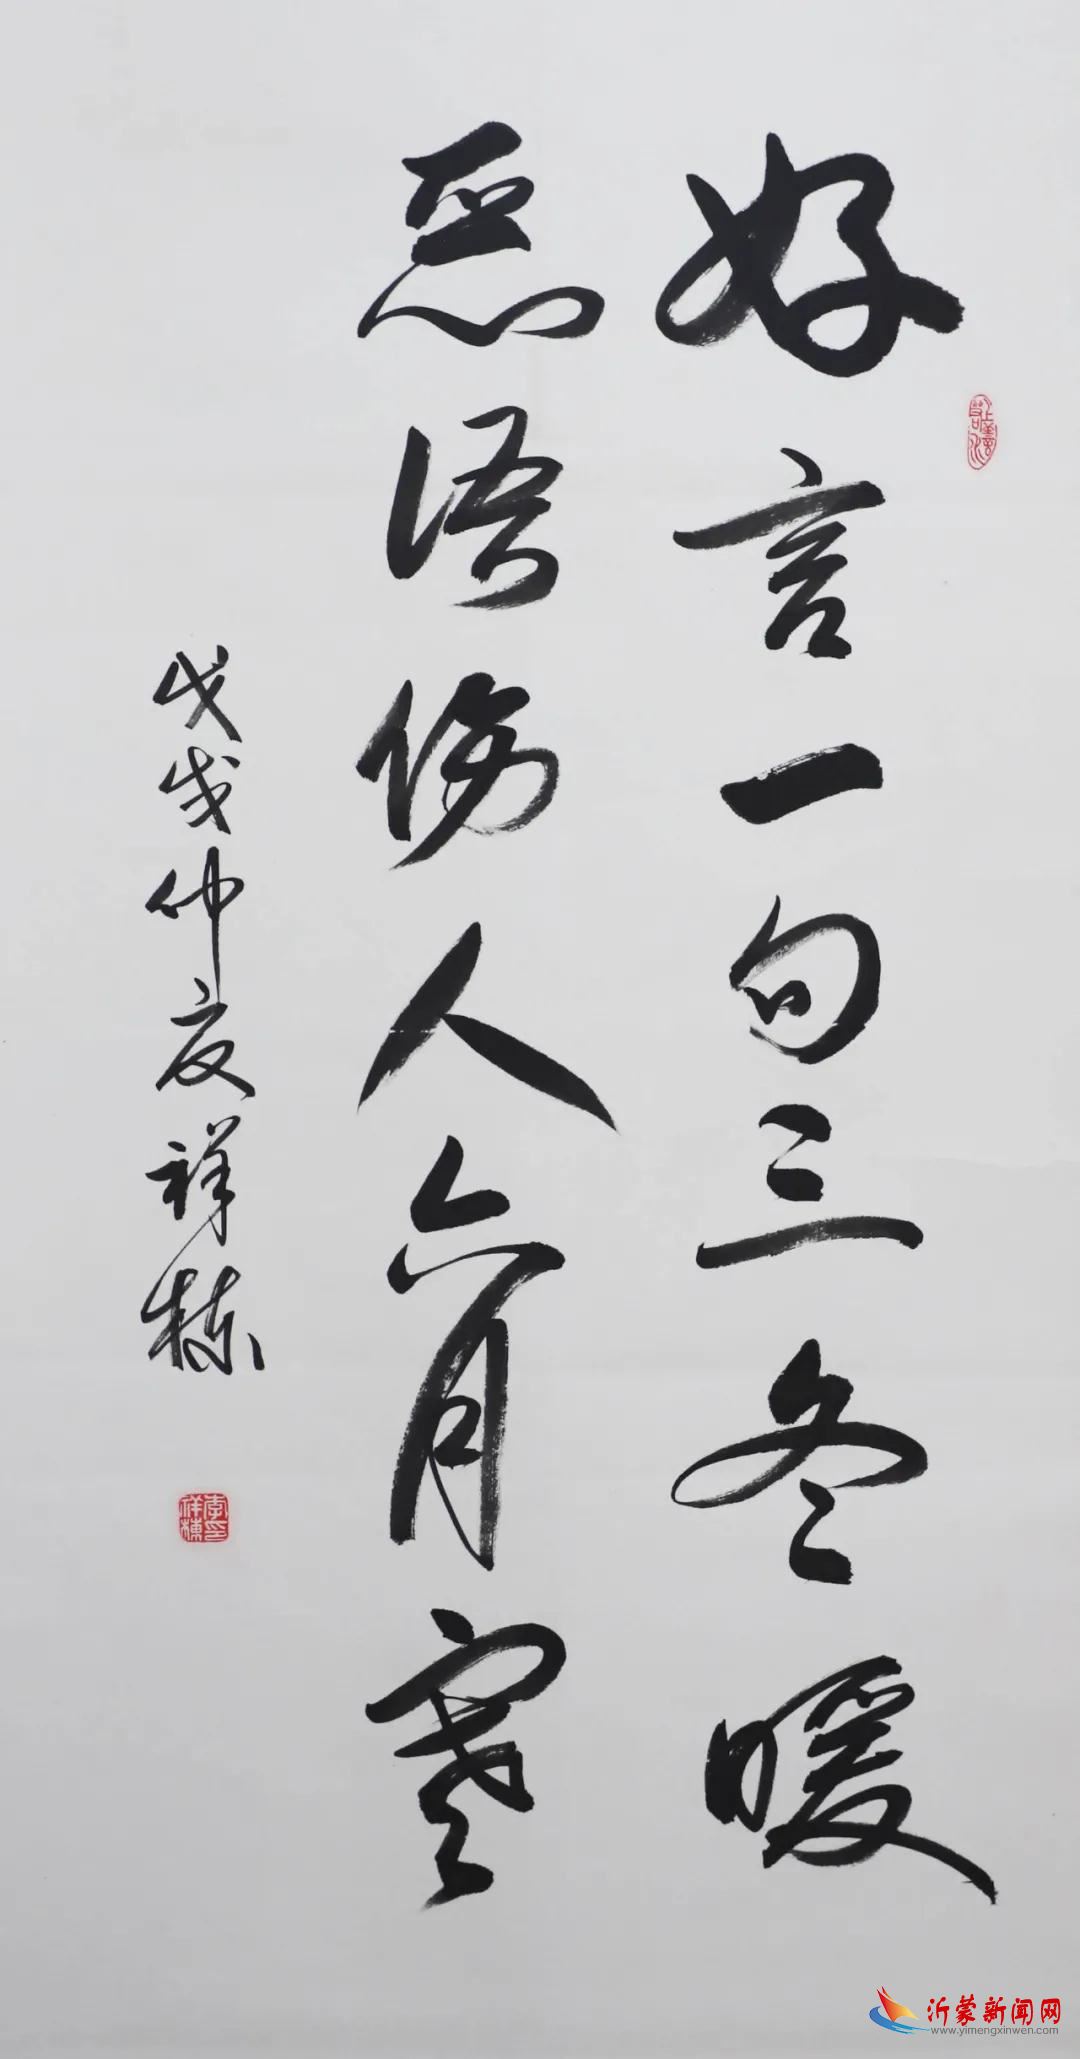 好言一句三冬暖
恶语伤人六月寒
戊戌仲夏祥栋
上善若水
李祥栋印
沂蒙新闻网
www.yimengxinwen.com